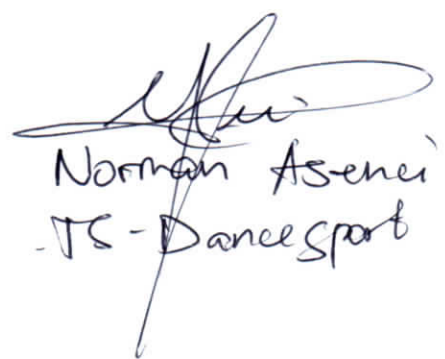 Norman Asenei
JS-Dancesport